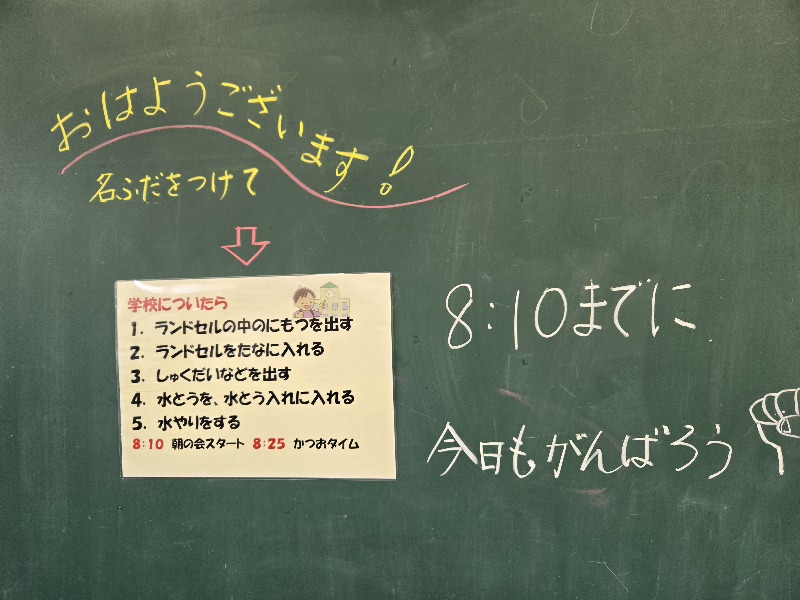 おはようございます!
名ふだをつけて
学校についたら
1. ランドセルの中のにもつを出す
2. ランドセルをたなに入れる
3. しゅくだいなどを出す
4. 水とうを、水とう入れに入れる
5. 水やりをする
8:10 朝の会スタート 8:25 かつおタイム
8:10までに
今日もがんばろう